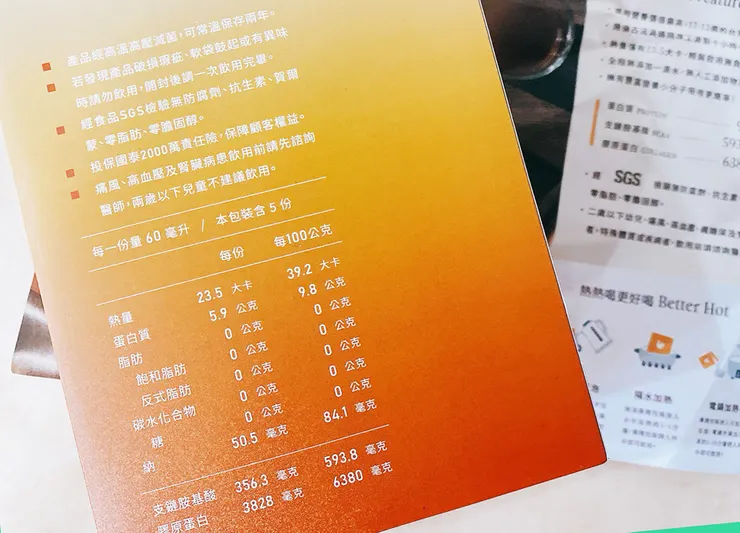 產品經高溫高壓滅菌,可常溫保存兩年。
若發現產品破損瑕疵、軟袋鼓起或有異味
時請勿飲用,開封後請一次飲用完畢。
經食品SGS檢驗無防腐劑、抗生素、賀爾
蒙、零脂肪、零膽固醇。
投保國泰2000萬責任險,保障顧客權益。
痛風、高血壓及腎臟病患飲用前請先諮詢
醫師,兩歲以下兒童不建議飲用。
每一份量 60 毫升 / 本包裝含 5 份
每份 每100公克
熱量 23.5 大卡 39.2 大卡
蛋白質 5.9 公克 9.8 公克
脂肪 0 公克 0 公克
飽和脂肪 0 公克 0 公克
反式脂肪 0 公克 0 公克
碳水化合物 0 公克 0 公克
糖 0 公克 0 公克
鈉 50.5 毫克 84.1 毫克
支鏈胺基酸 356.3 毫克 593.8 毫克
膠原蛋白 3828 毫克 6380 毫克
蛋白質 PROTEIN
支鏈胺基酸 BCAA 593
膠原蛋白 COLLAGEN 638
經 SGS
零脂肪、零膽固醇。
熱熱喝更好喝 Better Hot
隔水加熱
電鍋加熱